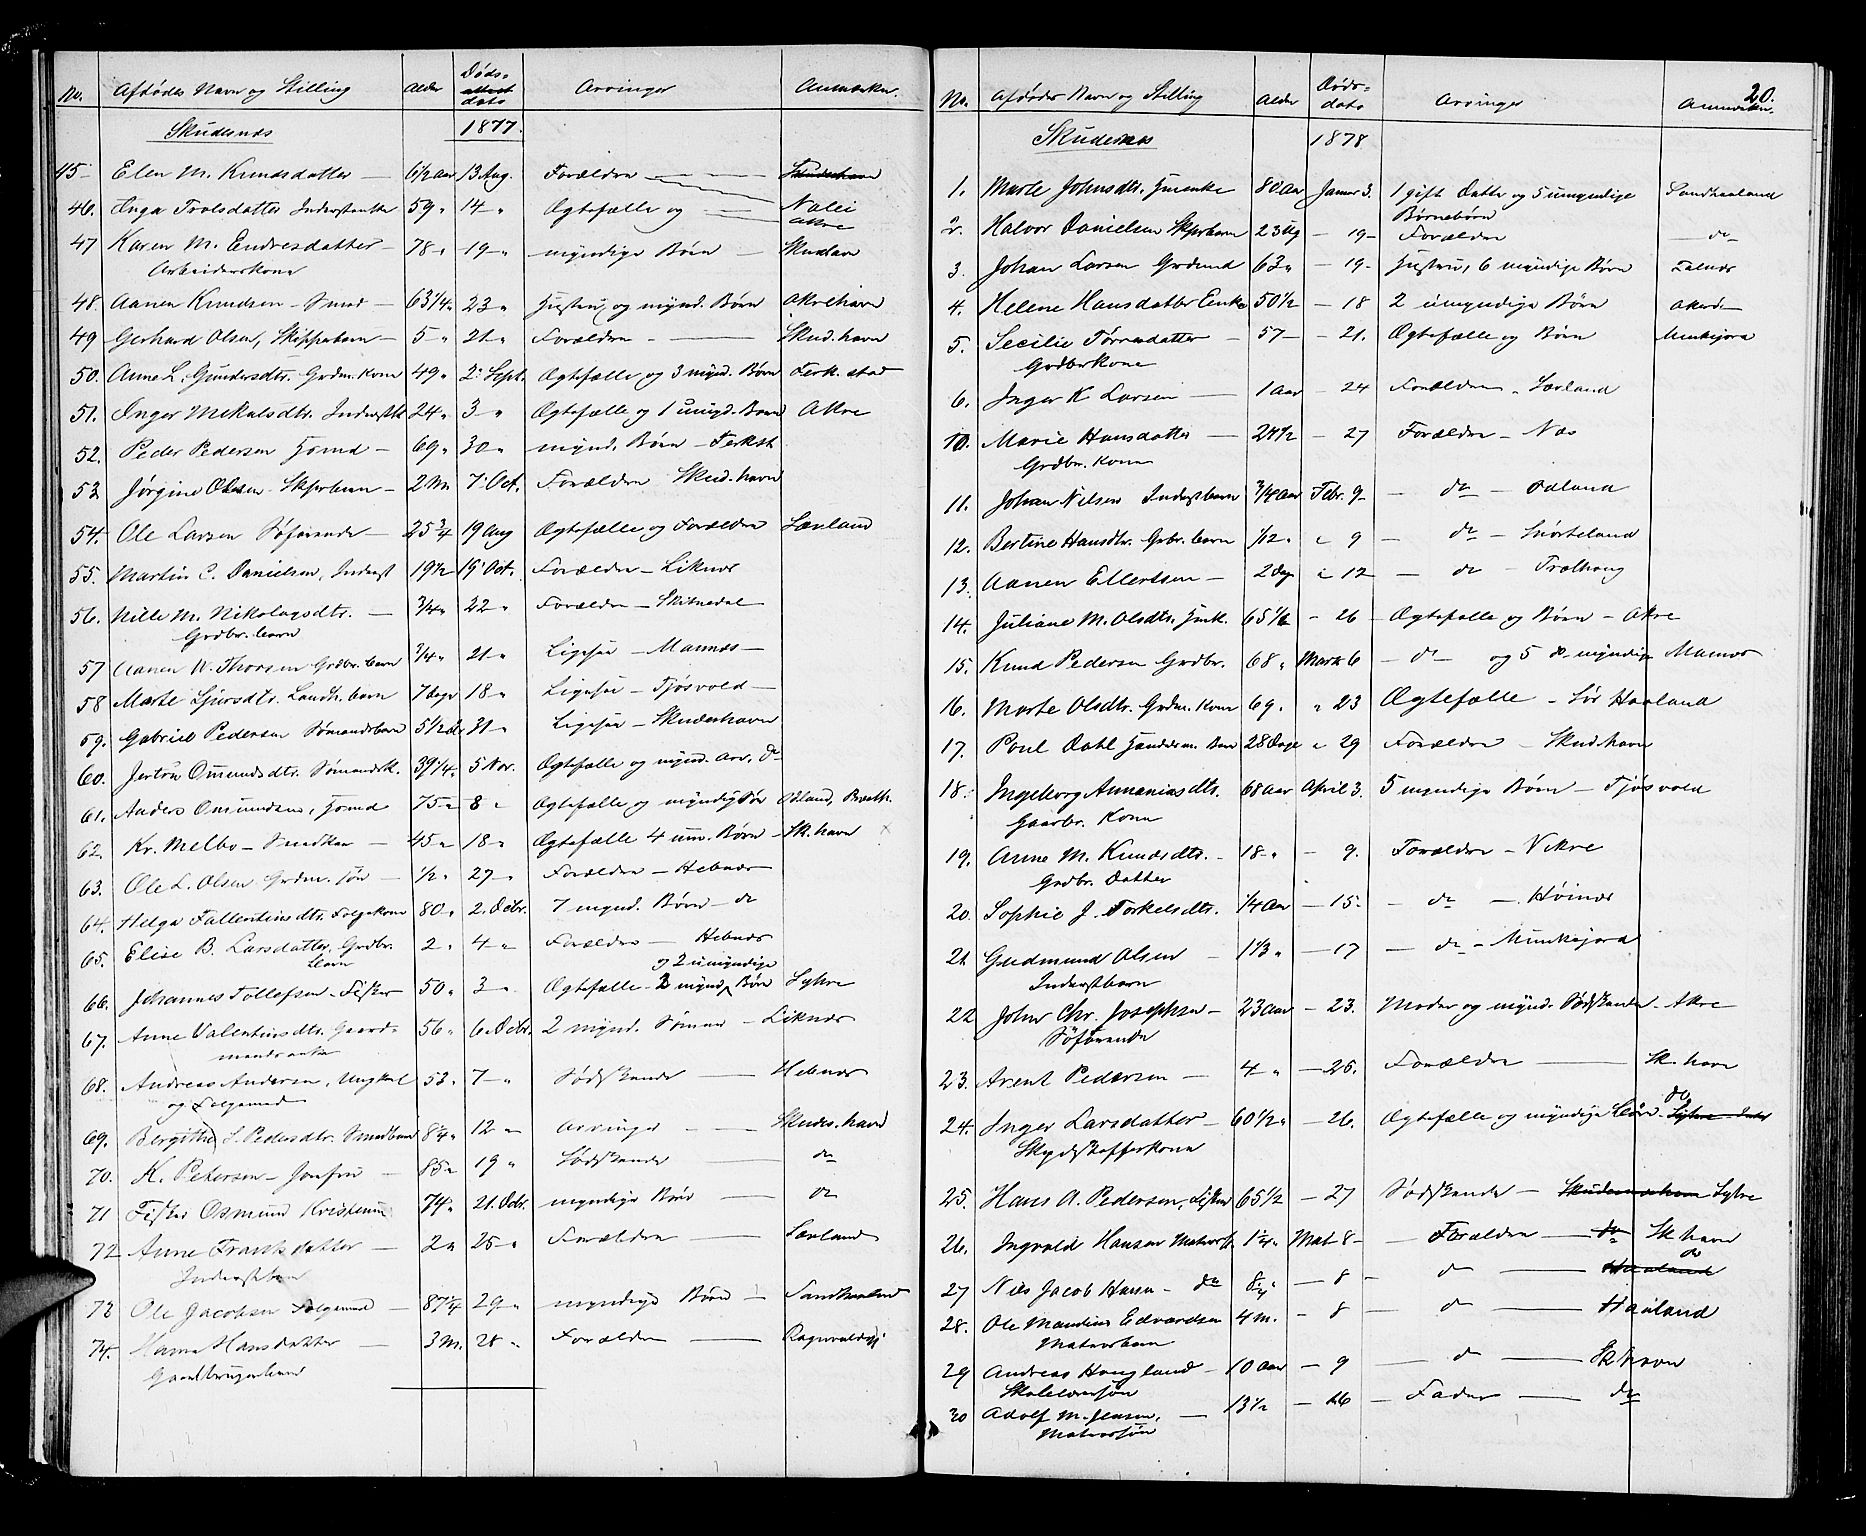 No. Afdødes Navn og Stilling Alder Døds- Arvinger Anmærkn.
dato
Skudesnæs 1877.
45 Elen M. Knudsdatter 6 1/2 Aar 13 Aug. Forældre Skudeshavn
46. Inga Trolsdatter Inderstenke 59 " 14 " Ægtefælle og
Akre
47 Karen M. Endresdatter 78 " 19 " myndige Børn
Arbeiderskone
48. Aanen Knudsen - Smed - 63 1/4 " 23 " Hustru og mynd. Børn Akrehavn
49 Gerhard Olsen, Skipperbarn 5 " 21 " Forældre Skud.havn
50. Anne L. Gundersdtr. Grdm. Kone 49 " 2 Sept. Ægtefælle og 3 mynd. Børn Ferk.stad
51. Inger Mekalsdtr. 24 " 3 " Ægtefælle og 1 umynd. Barn Akre
52. Peder Pedersen 69 " 30 " mynd. Børn - Ferkst.
53. Jørgine Olsen Skprbarn 2 Mn 7 Oct. Forældre Skud.havn
54. Ole Larsen Søfarende 25 3/4 19 Aug Ægtefælle og Forældre Sævland
55. Martin C. Danielsen, Inderst 19 1/2 15 Oct. Forældre - Liknæs
56. Nille M. Nikolaysdtr. 3/4 " 22 " Forældre - Skitnedal
Grdbr. barn
57 Aanen W. Thorsen Grdbr. barn 3/4 " 21 " Ligesaa - Mannæs
58 Marte Sjursdtr. Landh. barn 7 Dage 18 " Ligesaa - Tjøsvold
59. Gabriel Pedersen Sømandsbarn 5 1/2 31 " Ligesaa - Skudeshavn
60. Omundsdtr. Sømandsk. 39 1/4 " 5 Nov. Ægtefælle og mynd. Arv. do
61. Anders Omundsen, 75 " 8 " Ægtefælle og myndig Søn Ådland,
62. Kr. Melbo - 45 " 18 " Ægtefælle 4 um. Børn - Sk.havn
63. Ole L. Olsen Grdm. søn 1/2 " 27 " Forældre - Hebnæs
64. Helga Fallentinsdtr. Folgekone 80 " 2. Decbr. 7 mynd. Børn - do
65. Elise B. Larsdatter, Grdbr. 2 " 4 " Forældre - Hebnæs
barn
og 2 umyndige
66. Johannes Tollefsen - Fisker 50 " 3 " Ægtefælle 2 mynd. Børn Syhre
67. Anne Valentinsdtr. Gaard- 56 " 6. Decbr. 2 mynd. Sønner - Liknæs
mandsenke
68. Andreas Andersen, Ungkarl 53 " 7 " Sødskende Hebnæs
og Folgemand
69. Birgitha S. Pedersdtr. Smedbarn 8 1/4 " 12 " Arvinger Skudes.havn
70. K. Petersen - Jomfru 85 " 19 " Sødskende do
71 Fisker Osmund Kristensen 74 " 21. Decbr. myndige Børn do
72 Anne Franksdatter 2 " 25 " Forældre Sævland
Inderstbarn
73 Ole Jacobsen Folgemand 87 1/4 29 " myndige Børn Sandhaaland
74. Hansdatter 3 M. 28 " Forældre
Gaardbrugerbarn
No. Afdødes Navn og Stilling Alder Døds- Arvinger Anmærkn. 20.
dato
Skudesnæs 1878
1. Marte Johnsdtr. Huuenke 80 Aar Januar 3. 1 gift Datter og 5 umyndige Sandhaaland
Børnebørn
2. Halvor Danielsen Skprbarn 23 Ug - 19 - Forældre do
3. Johan Larsen Grdmd 63 " - 19 - Hustru, 6 myndige Børn Falnæs
4. Helene Hansdatter Enke 50 1/2 - 18 2 umyndige Børn
5. Secilie Tørresdatter 57 - 21. Ægtefælle og Børn Munkejord
Grdbrkone
6. Inger K Larsen 1 Aar - 24 Forældre - Sævland
10. Marie Hansdatter 27 1/2 - 27 Forældre - Næs
Grdbr. Kone
11. Johan Nilsen Inderstbarn 3/4 Aar Febr. 9 - do - Ådland
12. Bertine Hansdtr. Grbr. barn 1/12 " " 9 - do - Snørteland
13. Aanen Ellertsen 2 Dage " 12 - do - Trælhaug
14. Juliane M. Olsdtr. 65 1/2 - 26 Ægtefælle og Børn - Akre
15. Knud Pedersen Grdbr. 68 " Marts 6 - do - og 5 do myndige Mannæs
16. Marte Olsdtr. Grdm. Kone 69. " 23 Ægtefælle - Sør Haaland
17. Poul Dahl Handelsm. Barn 28 Dage " 29 Forældre - Skud.havn
18. Ingeborg Annaniasdtr. 68 Aar April 3. 5 myndige Børn - Tjøsvold
Gaarbr. Kone
19. Anne M. Knudsdtr. 18 " - 9. Forældre - Vikre
Grdbr. Datter
20. Sophie J. Torkelsdtr. 1/4 Aar - 15 - do - Høinæs
21. Gudmund Olsen 1 1/3 " - 17 - do - Munkejord
Inderstbarn
22 John Chr. Josephsen 23 Aar - 23. Moder og mynd. Sødskende - Akre
Søfarende
23. Arent Pedersen 4 " - 25. Forældre Sk.havn
24. Inger Larsdatter 60 1/2 " - 26. Ægtefælle og myndige Børn. do
Skydskafferkone
25. Hans A. Pedersen, Fisker 65 1/2 - 27 Sødskende - Skudesneshavn Syhre
26. Ingvald Hansen Matrosb. 1 1/4 " Mai 8 - Forældre - do Sk.havn
27 Nils Jacob Hansen - do - 8 - do Haaland do
28. Ole Mandius Edvardsen 4 m. - 8 - do Haaland
Matrosbarn
29 Andreas Haugland 10 Aar - 9 - do Sk.havn
Skolelærersøn
30 Adolf M. Jensen, 13 1/2 - 26 - Fader do
Matrossøn